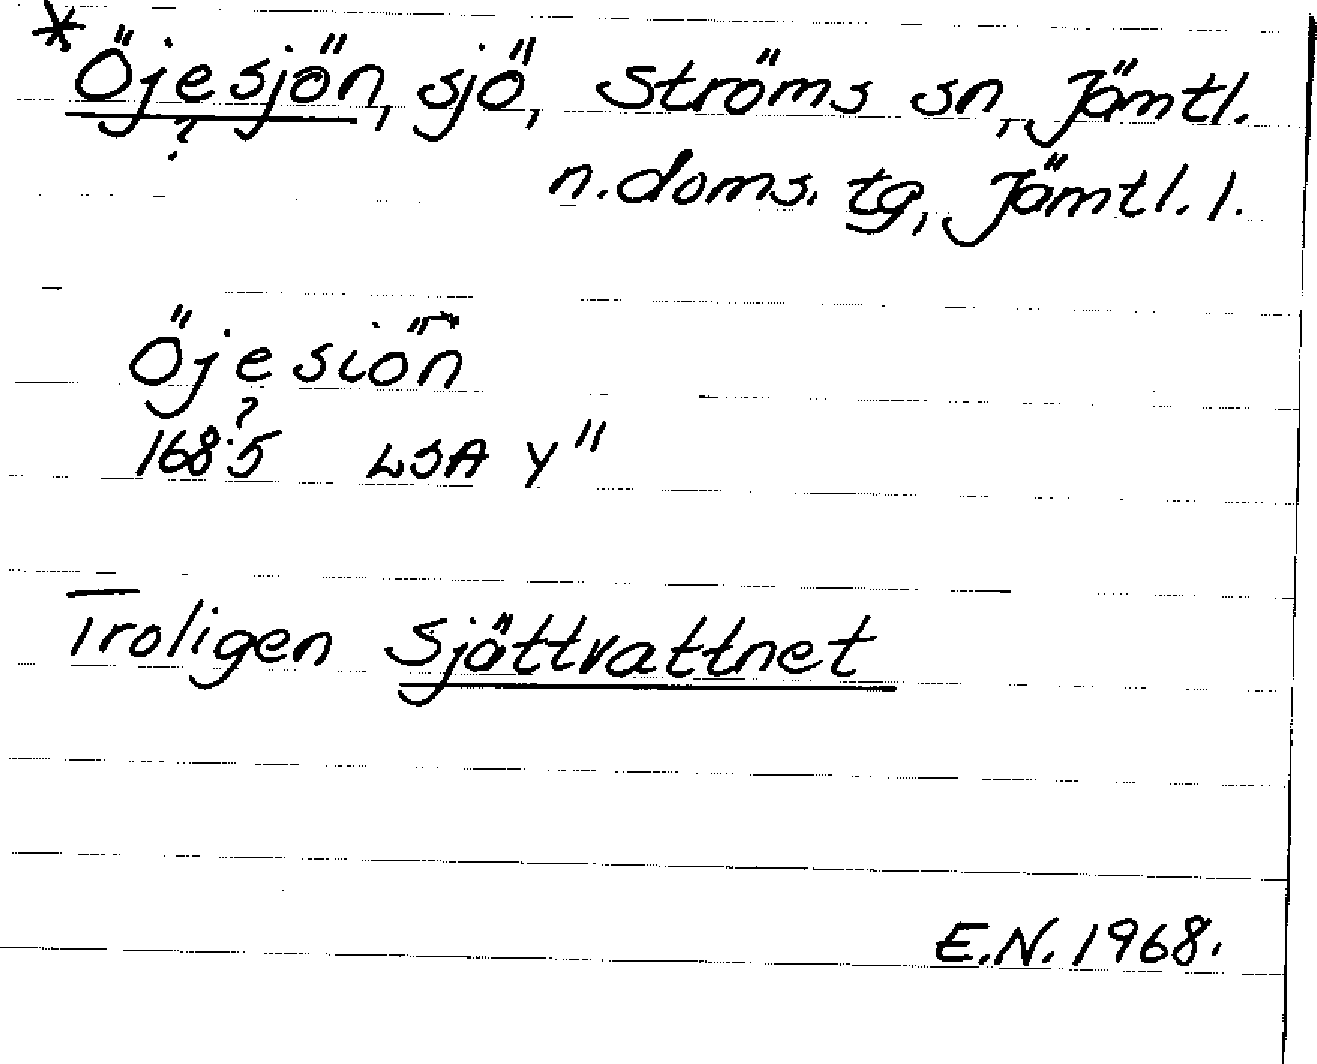 *Öjesjön, sjö, Ströms sn, Jämtl.
?
n. doms. tg, Jämtl. l.
Öjesiön
?
1685 LSA Y"
Troligen Sjättvattnet
E.N. 1968.